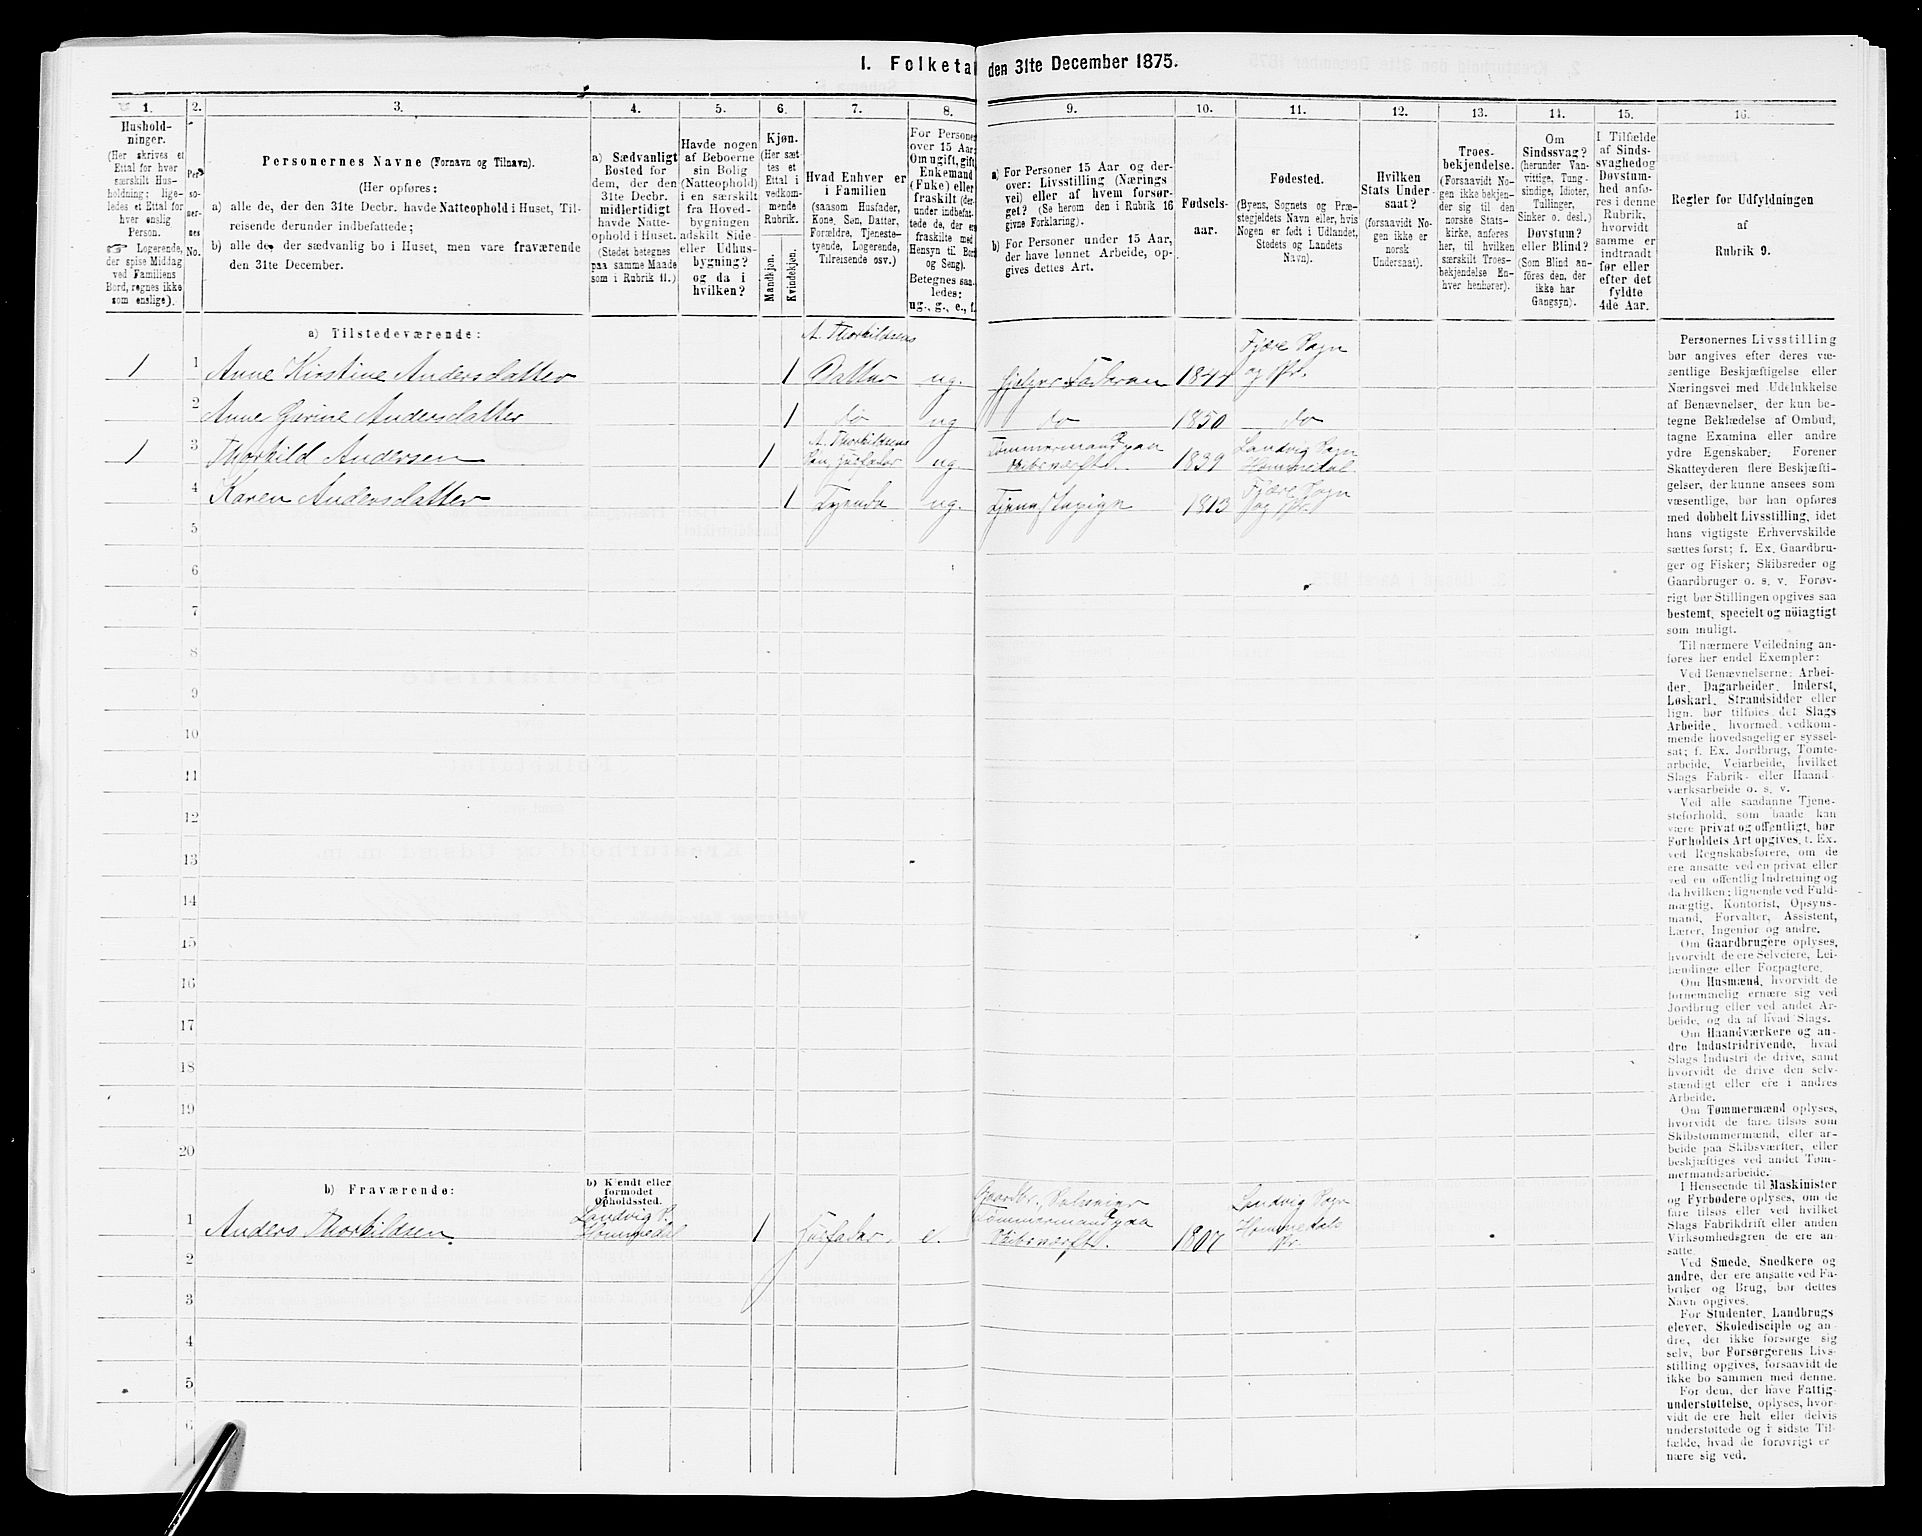 I. Folketal den 31te December 1875.
1. 2. 3. 4. 5. 6. 7. 8. 9. 10. 11. 12. 13. 14. 15. 16.
Hushold-
ninger.
(Her skrives et
Ettal for hver
særskilt Hus-
holdning; lige-
ledes et Ettal for
hver enslig
Person.
Logerende,
der spise Middag
ved Familiens
Bord, regnes ikke
som enslige).
Per-
so-
ner-
nes
No.
Personernes Navne (Fornavn og Tilnavn).
(Her opføres:
a) alle de, der den 31te Decbr. havde Natteophold i Huset, Til-
reisende derunder indbefattede;
b) alle de, der sædvanlig bo i Huset, men vare fraværende
den 31te December.
a) Sædvanligt
Bosted for
dem, der den
31te Decbr.
midlertidigt
havde Natte-
ophold i Huset.
(Stedet betegnes
paa samme Maade
som i Rubrik 11.)
Havde nogen
af Beboerne
sin Bolig
(Natteophold)
i en særskilt
fra Hoved-
bygningen
adskilt Side-
eller Udhus-
bygning?
og da i
hvilken?
Kjøn.
(Her sæt-
tes et
Ettal i
vedkom-
mende
Rubrik.
Mandkjøn.
Kvindekjøn.
Hvad Enhver er
i Familien
(saasom Husfader,
Kone, Søn, Datter,
Forældre, Tjeneste-
tyende, Logerende,
Tilreisende osv.)
For Personer
over 15 Aar:
Om ugift, gift,
Enkemand
(Enke) eller
fraskilt (der-
under indbefat-
tede de, der ere
fraskilte med
Hensyn til Bord
og Seng).
Betegnes saa-
ledes:
ug., g., e., f.
a) For Personer 15 Aar og der-
over: Livsstilling (Nærings-
vei) eller af hvem forsør-
get? (Se herom den i Rubrik 16
givne Forklaring).
b) For Personer under 15 Aar,
der have lønnet Arbeide, op-
gives dettes Art.
Fødsels-
aar.
Fødested.
(Byens, Sognets og Præ-
stegjeldets Navn eller, hvis
Nogen er født i Udlandet,
Stedets og Landets
Navn).
Hvilken
Stats Under-
saat?
(forsaavidt No-
gen ikke er
norsk
Undersaat).
Troes-
bekjendelse.
(Forsaavidt No-
gen ikke bekjen-
der sig til den
norske Stats-
kirke, anføres
her, til hvilken
særskilt Troes-
bekjendelse En-
hver henhører).
Om
Sindssvag?
(herunder Van-
vittige, Tung-
sindige, Idioter,
Tullinger,
Sinker o. desl.)
Døvstum?
eller Blind?
(Som Blind an-
føres den, der
ikke har
Gangsyn).
I Tilfælde
af Sinds-
svaghed og
Døvstum-
hed anfø-
res i denne
Rubrik,
hvorvidt
samme er
indtraadt
før eller
efter det
fyldte
4de Aar.
Regler for Udfyldningen
af
Rubrik 9.
a) Tilstedeværende:
1 1 Anne Kirstine Andersdatter 1 A. Thorkildsens Datter ug. hjelper Faderen 1844 Fjære Sogn og Pr.
2 Anne Gurine Andersdatter 1 do ug do 1850 do
1 3 Thorkild Andersen 1 A. Thorkildsens Søn, Husfader ug. Tømmermand paa Skibsværft. 1839 Landvig Sogn Hommedal
4 Karen Andersdatter 1 Tyende ug. Tjenestepige 1813 Fjære Sogn og Pr.
5
6
7
8
9
10
11
12
13
14
15
16
17
18
19
20
b) Fraværende:
b) Kjendt eller
formodet
Opholdssted.
1 Anders Thorkildsen. Landvig S. Hommedal 1 Husfader. e. Gaardbr., Selveier Tømmermand paa Skibsværft. 1807 Landvig Sogn Hommedals Pr.
2
3
4
5
6
Personernes Livsstilling
bør angives efter deres væ-
sentlige Beskjæftigelse eller
Næringsvei med Udelukkelse
af Benævnelser, der kun be-
tegne Beklædelse af Ombud,
tagne Examina eller andre
ydre Egenskaber. Forener
Skatteyderen flere Beskjæfti-
gelser, der kunne ansees som
væsentlige, bør han opføres
med dobbelt Livsstilling, idet
hans vigtigste Erhvervskilde
sættes først; f. Ex. Gaardbru-
ger og Fisker; Skibsreder og
Gaardbruger o. s. v. Forøv-
rigt bør Stillingen opgives saa
bestemt, specielt og nöiagtigt
som muligt.
Til nærmere Veiledning an-
føres her endel Exempler:
Ved Benævnelserne: Arbei-
der, Dagarbeider, Inderst,
Løskarl, Strandsidder eller
lign. bør tilføies det Slags
Arbeide, hvormed vedkom-
mende hovedsagelig er syssel-
sat; f. Ex. Jordbrug, Tomte-
arbeide, Veiarbeide, hvilket
Slags Fabrik- eller Haand-
værksarbeide o. s. v.
Ved alle saadanne Tjene-
steforhold, som baade kan
være privat og offentligt, bør
Forholdets Art opgives, f. Ex.
ved Regnskabsførere, om de
ere ansatte ved en privat eller
ved en offentlig Indretning og
da hvilken; lignende ved Fuld-
mægtig, Kontorist, Opsyns-
mand, Forvalter, Assistent,
Lærer, Ingeniør og andre.
Om Gaardbrugere oplyses,
hvorvidt de ere Selveiere, Lei-
lændinge eller Forpagtere.
Om Husmænd, hvorvidt de
fornemmelig ernære sig ved
Jordbrug eller ved andet Ar-
beide, og da af hvad Slags.
Om Haandværkere og an-
dre Industridrivende, hvad
Slags Industri de drive, samt
hvorvidt de drive den selv-
stændigt eller ere i andres
Arbeide.
Om Tømmermænd oplyses,
hvorvidt de fare tilsøs som
Skibstømmermænd, eller ar-
beide paa Skibsværfter, eller
beskjæftiges ved andet Tøm-
mermandsarbeide.
I Henseende til Maskinister
og Fyrbødere oplyses, om de
fare tilsøs eller ved hvilket
Slags Fabrikdrift eller anden
Virksomhedsgren de ere an-
satte.
Ved Smede, Snedkere og
andre, der ere ansatte ved Fa-
briker og Brug, bør dettes
Navn opgives.
For Studenter, Landbrugs-
elever, Skoledisciple og an-
dre, der ikke forsørge sig
selv, bør Forsørgerens Livs-
stilling opgives, forsaavidt de
ikke bo sammen med denne.
For dem, der have Fattig-
understøttelse, oplyses, hvor-
vidt de ere helt eller delvis
understøttede og i sidste Til-
fælde, hvad de forøvrigt er-
nære sig ved.